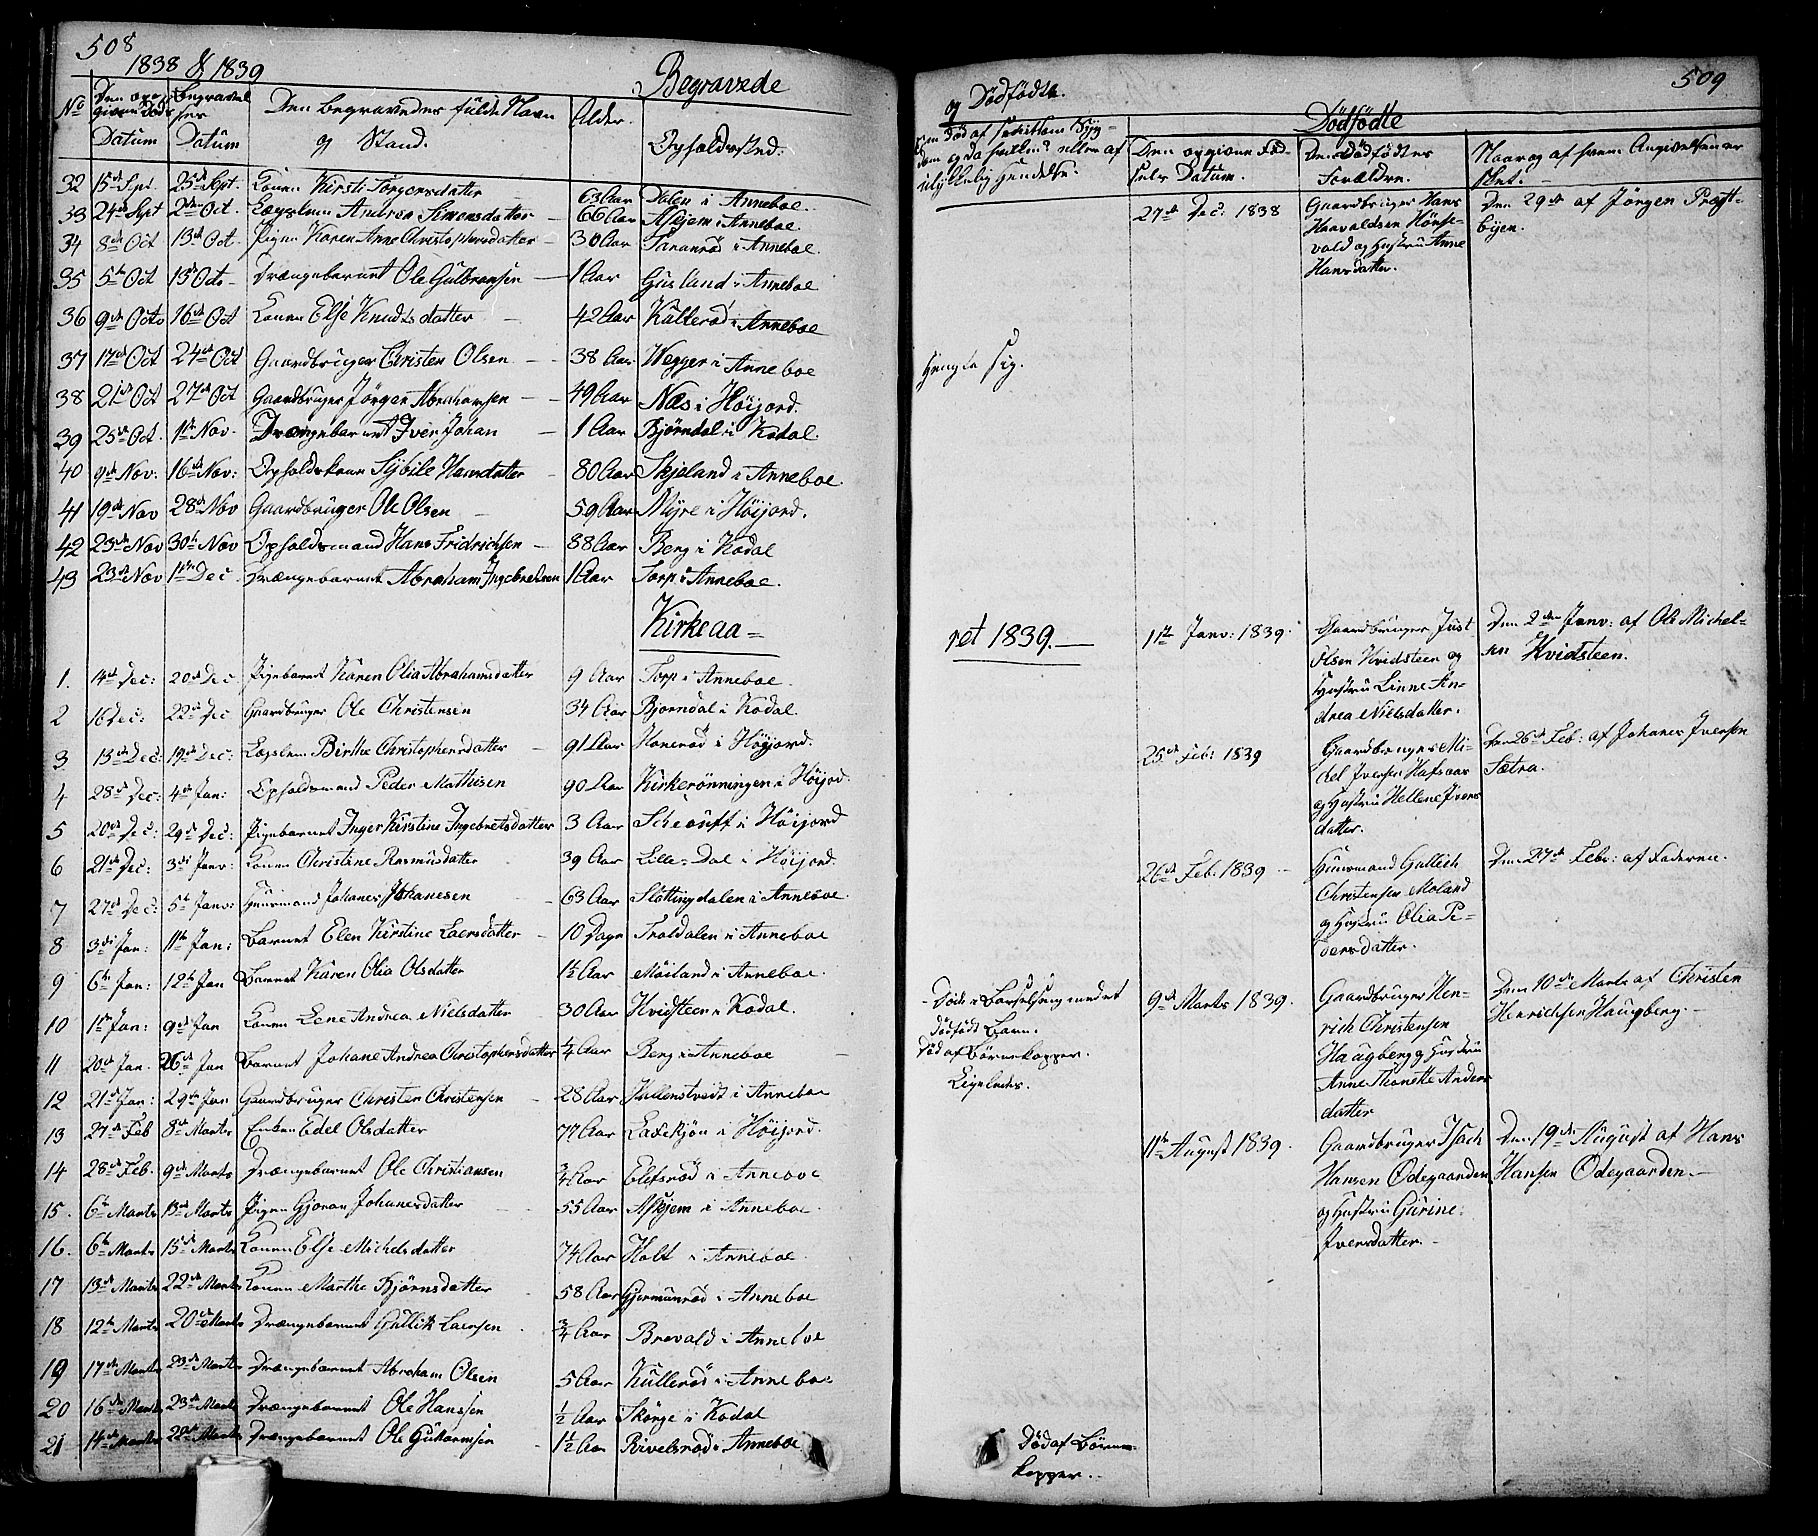 508
1838 & 1839
Begravede
No
Den opgivne Døds Datum
Begravelses Datum
Den begravedes fulde Navn og Stand.
Alder.
Opholdssted.
32 15de Spt. 25de Sept. Konen Kirsti Jørgensdatter 63 Aar Dalen i Anneboe.
33 24de Sept 2den Oct. Lægslem Andrea Simonsdatter 66 Aar Askjem i Anneboe.
34 8de Oct 13de Oct. Pigen Karen Anne Christophersdatter 30 Aar i Anneboe.
35 5te Oct 13de Octo Drængebarnet Ole Gulbransen 1 Aar Gusland i Anneboe
36 9de Octo 16de Oct Konen Else Knudsdatter 42 Aar Kullerød i Anneboe
37 17de Oct 24de Oct Gaardbruger Christen Olsen 38 Aar Wegger i Anneboe
38 21de Oct 27de Oct Gaardbruger Jørgen Abrahamsen 49 Aar Næs i Høijord.
39 25de Oct. 1ste Nov. Drængebarnet Iver Johan 1 Aar Bjørndal i Kodal.
40 9de Nov: 16de Nov: Opholdskone Sybile Hansdatter 80 Aar Skjeland i Anneboe.
41 19de Nov 28de Nov Gaardbruger Ole Olsen 59 Aar Myre i Høijord.
42 23de Nov 30te Nov Opholdsmand Hans Fridrichsen 88 Aar Berg i Kodal
43 23de Nov 1ste Dec Drængebarnet Abraham Ingebretsen 1 Aar Torp i Anneboe.
Kirkeaa=
1. 14de Dec: 20de Dec Pigebarnet Karen Olia Abrahamsdatter 9 Aar Torp i Anneboe.
2 16 Dec: 22de Dec Gaardbruger Ole Christensen 34 Aar Bjorndal i Kodal.
3 13de Dec: 19de Dec: Lægslem Birthe Christophersdatter 91 Aar Honerød i Høijord.
4 28de Dec: 4de Jan: Opholdsmand Peder Mathisen 90 Aar Kirkerønningen i Høijord.
5 20de Dec: 29de Dec: Pigebarnet Inger Kirstine Ingebretsdatter 3 Aar i Høijord
6 21de Dec: 3die Janv: Konen Christine Rasmusdatter 39 Aar Lille-Dal i Høijord.
7 27de Dec: 5te Janv: Huusmand Johanes Johanesen 63 Aar Slottingdalen i Anneboe.
8 3die Jan: 11te Jan: Barnet Elen Kirstine Laersdatter 10 Dage Troldalen i Anneboe
9 6te Jan: 12te Jan Barnet Karen Olia Olsdatter 1½ Aar Møiland i Anneboe.
10 1ste Jan: 9de Jan Konen Lene Andrea Nielsdatter 30 Aar Hvidsteen i Kodal.
11 20de Jan. 26de Jan Barnet Johane Andrea Christophersdatter ¼ Aar Berg i Anneboe
12 21de Jan: 29de Jan Gaardbruger Christen Christensen 28 Aar Hallenstvedt i Anneboe
13 27de Feb 8de Marts Enken Edel Olsdatter 77 Aar Laxeskjøn i Høijord.
14 28de Feb. 9de Marts Drængebarnet Ole Christiansen ¾ Aar Elefsrød i Anneboe
15. 6te Marts 13de Marts Pigen Gjoran Johanesdatter 55 Aar Askjem i Anneboe.
16. 6te Marts 15de Marts Konen Else Michelsdatter 74 Aar Holt i Anneboe
17 13de Marts 22de Marts Konen Marthe Bjørnsdatter 58 Aar Gjermunrød i Anneboe
18 12te Marts 20de Marts Drængebarnet Gullik Laersen ¾ Aar Brevald i Anneboe
19 17de Marts 23de Marts Drængebarnet Abraham Olsen 5 Aar Kullerød i Anneboe
20 16de Marts 23de Marts Drængebarnet Ole Hansen ½ Aar Skorge i Kodal
21 14de Marts 22de Marts Drængebarnet Ole Guttormsen 1½ Aar Rivelsrød i Anneboe
509
og Dødfødte.
Om død af Syg-
dom og da hvilken? eller af
ulykkelig Hendelse.
Dødfødte
Den opgivne Fød-
sels Datum.
Den Dødfødtes
Forældre.
Naar og af hvem Angivelsen er
skeet.
27de Dec: 1838
Gaardbruger Hans
Haavaldsen
vald og Hustru Anne
Hansdatter.
Den 29de af Jörgen Prest-
byen.
Hengte sig.
ret 1839.
1ste Janv: 1839.
Gaardbruger Just
Olsen Hvidsteen og
Hustru Linne An-
drea Nielsdatter.
Den 2den Janv: af Ole Michel-
sen Hvidsteen.
25de Feb: 1839
Gaardbruger Mi-
kel Iversen Hafsaas
og Hustru Hellene Ivers
datter.
Den 26de Feb: af Johanes Iversen
Sætra.
26de Feb. 1839
Huusmand Gullich
Christensen Moland
og Hustru Olia Pe-
dersdatter.
Den 27de Febr: af Faderen.
Døde i Barselseng med et
dødfødt Barn.
Død af Börnekopper.
Ligeledes.
9de Marts 1839.
Gaardbruger Hen-
rich Christensen
Haugberg og Hustru
Anne Thonette Anders
datter
Den 10de Marts af Christen
Henrichsen Haugberg.
11te August 1839.
Gaardbruger Isach
Hansen Ødegaarden
og Hustru Gurine
Iversdatter.
Den 19de August af Hans
Hansen Ødegaarden.
Død af Börne-
kopper.